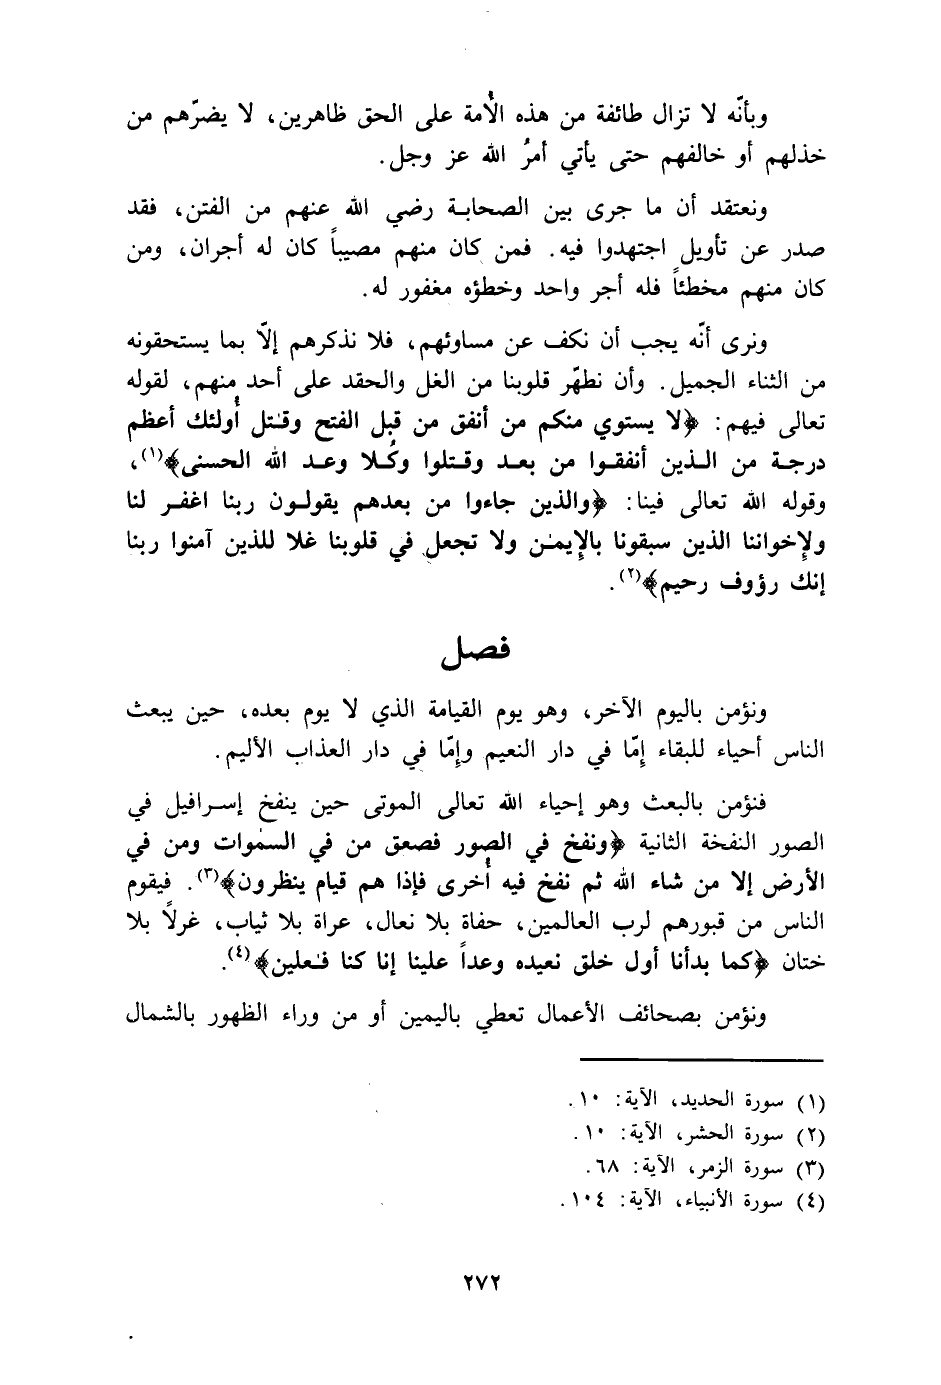 وبأنّه لا تزال طائفة من هذه الأُمة على الحق ظاهرين، لا يضرّهم من
خذلهم أو خالفهم حتى يأتي أمرُ الله عز وجل.
ونعتقد أن ما جرى بين الصحابة رضي الله عنهم من الفتن، فقد
صدر عن تأويل اجتهدوا فيه. فمن كان منهم مصيباً كان له أجران، ومن
كان منهم مخطئاً فله أجر واحد وخطؤه مغفور له.
ونرى أنّه يجب أن نكف عن مساوئهم، فلا نذكرهم إلّا بما يستحقونه
من الثناء الجميل. وأن نطهّر قلوبنا من الغل والحقد على أحد منهم، لقوله
تعالى فيهم: ﴿لا يستوي منكم من أنفق من قبل الفتح وقٰتل أُولئك أعظم
درجة من الذين أنفقوا من بعد وقٰتلوا وكُلا وعد الله الحسنى﴾(١)،
وقوله الله تعالى فينا: ﴿والذين جاءوا من بعدهم يقولون ربنا اغفر لنا
ولإخواننا الذين سبقونا بالإيمٰن ولا تجعل في قلوبنا غلا للذين آمنوا ربنا
إنك رؤوف رحيم﴾(٢).
فصل
ونؤمن باليوم الآخر، وهو يوم القيامة الذي لا يوم بعده، حين يبعث
الناس أحياء للبقاء إمّا في دار النعيم وإمّا في دار العذاب الأليم.
فنؤمن بالبعث وهو إحياء الله تعالى الموتى حين ينفخ إسرافيل في
الصور النفخة الثانية ﴿ونفخ في الصور فصعق من في السمٰوات ومن في
الأرض إلا من شاء الله ثم نفخ فيه أُخرى فإذا هم قيام ينظرون﴾(٣). فيقوم
الناس من قبورهم لرب العالمين، حفاة بلا نعال، عراة بلا ثياب، غرلاً بلا
ختان ﴿كما بدأنا أول خلق نعيده وعداً علينا إنا كنا فٰعلين﴾(٤).
ونؤمن بصحائف الأعمال تعطي باليمين أو من وراء الظهور بالشمال
(١) سورة الحديد، الآية: ١٠.
(٢) سورة الحشر، الآية: ١٠.
(٣) سورة الزمر، الآية: ٦٨.
(٤) سورة الأنبياء، الآية: ١٠٤.
٢٧٢